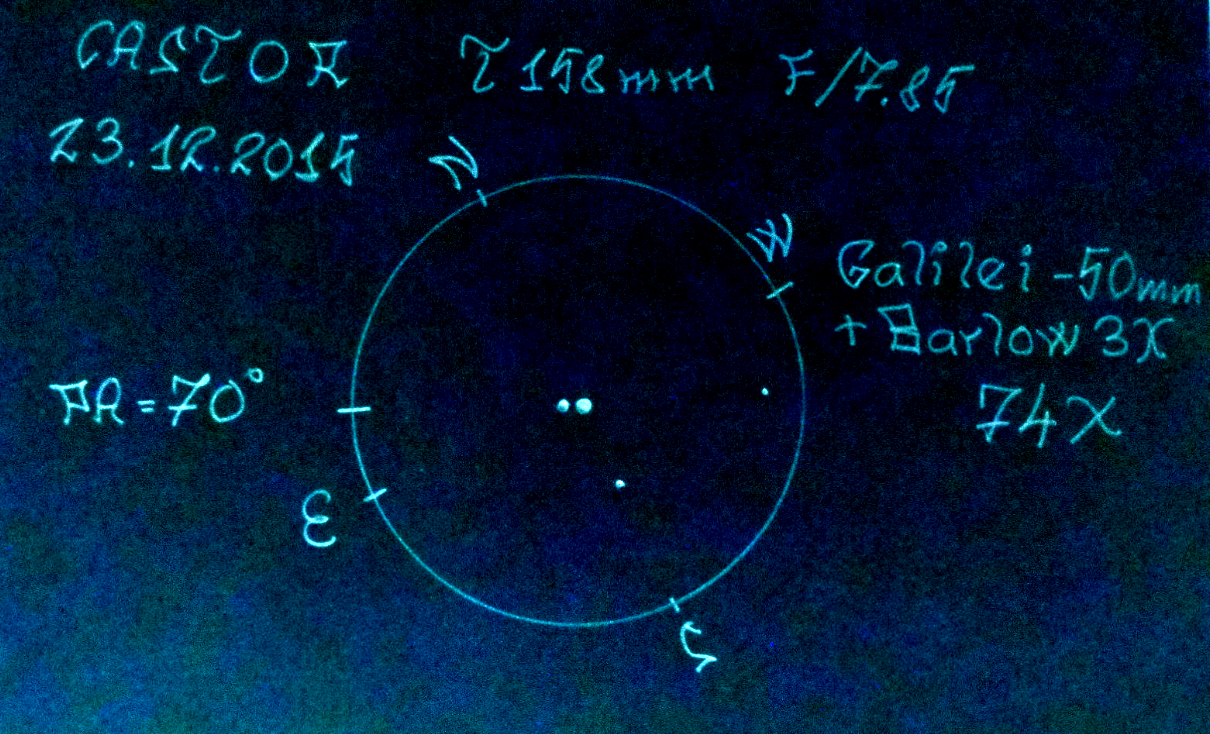 CASTOR T158mm F/7.85
23.12.2015
N
W
Galilei -50mm
+ Barlow 3X
74X
PA = 70°
E
S